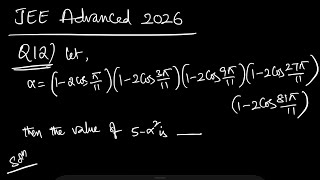 JEE Advanced 2026
Q12) Let,
α = (1-2Cos π/11)(1-2Cos 3π/11)(1-2Cos 9π/11)(1-2Cos 27π/11)
(1-2Cos 81π/11)
then the value of 5-α² is ___
Solⁿ